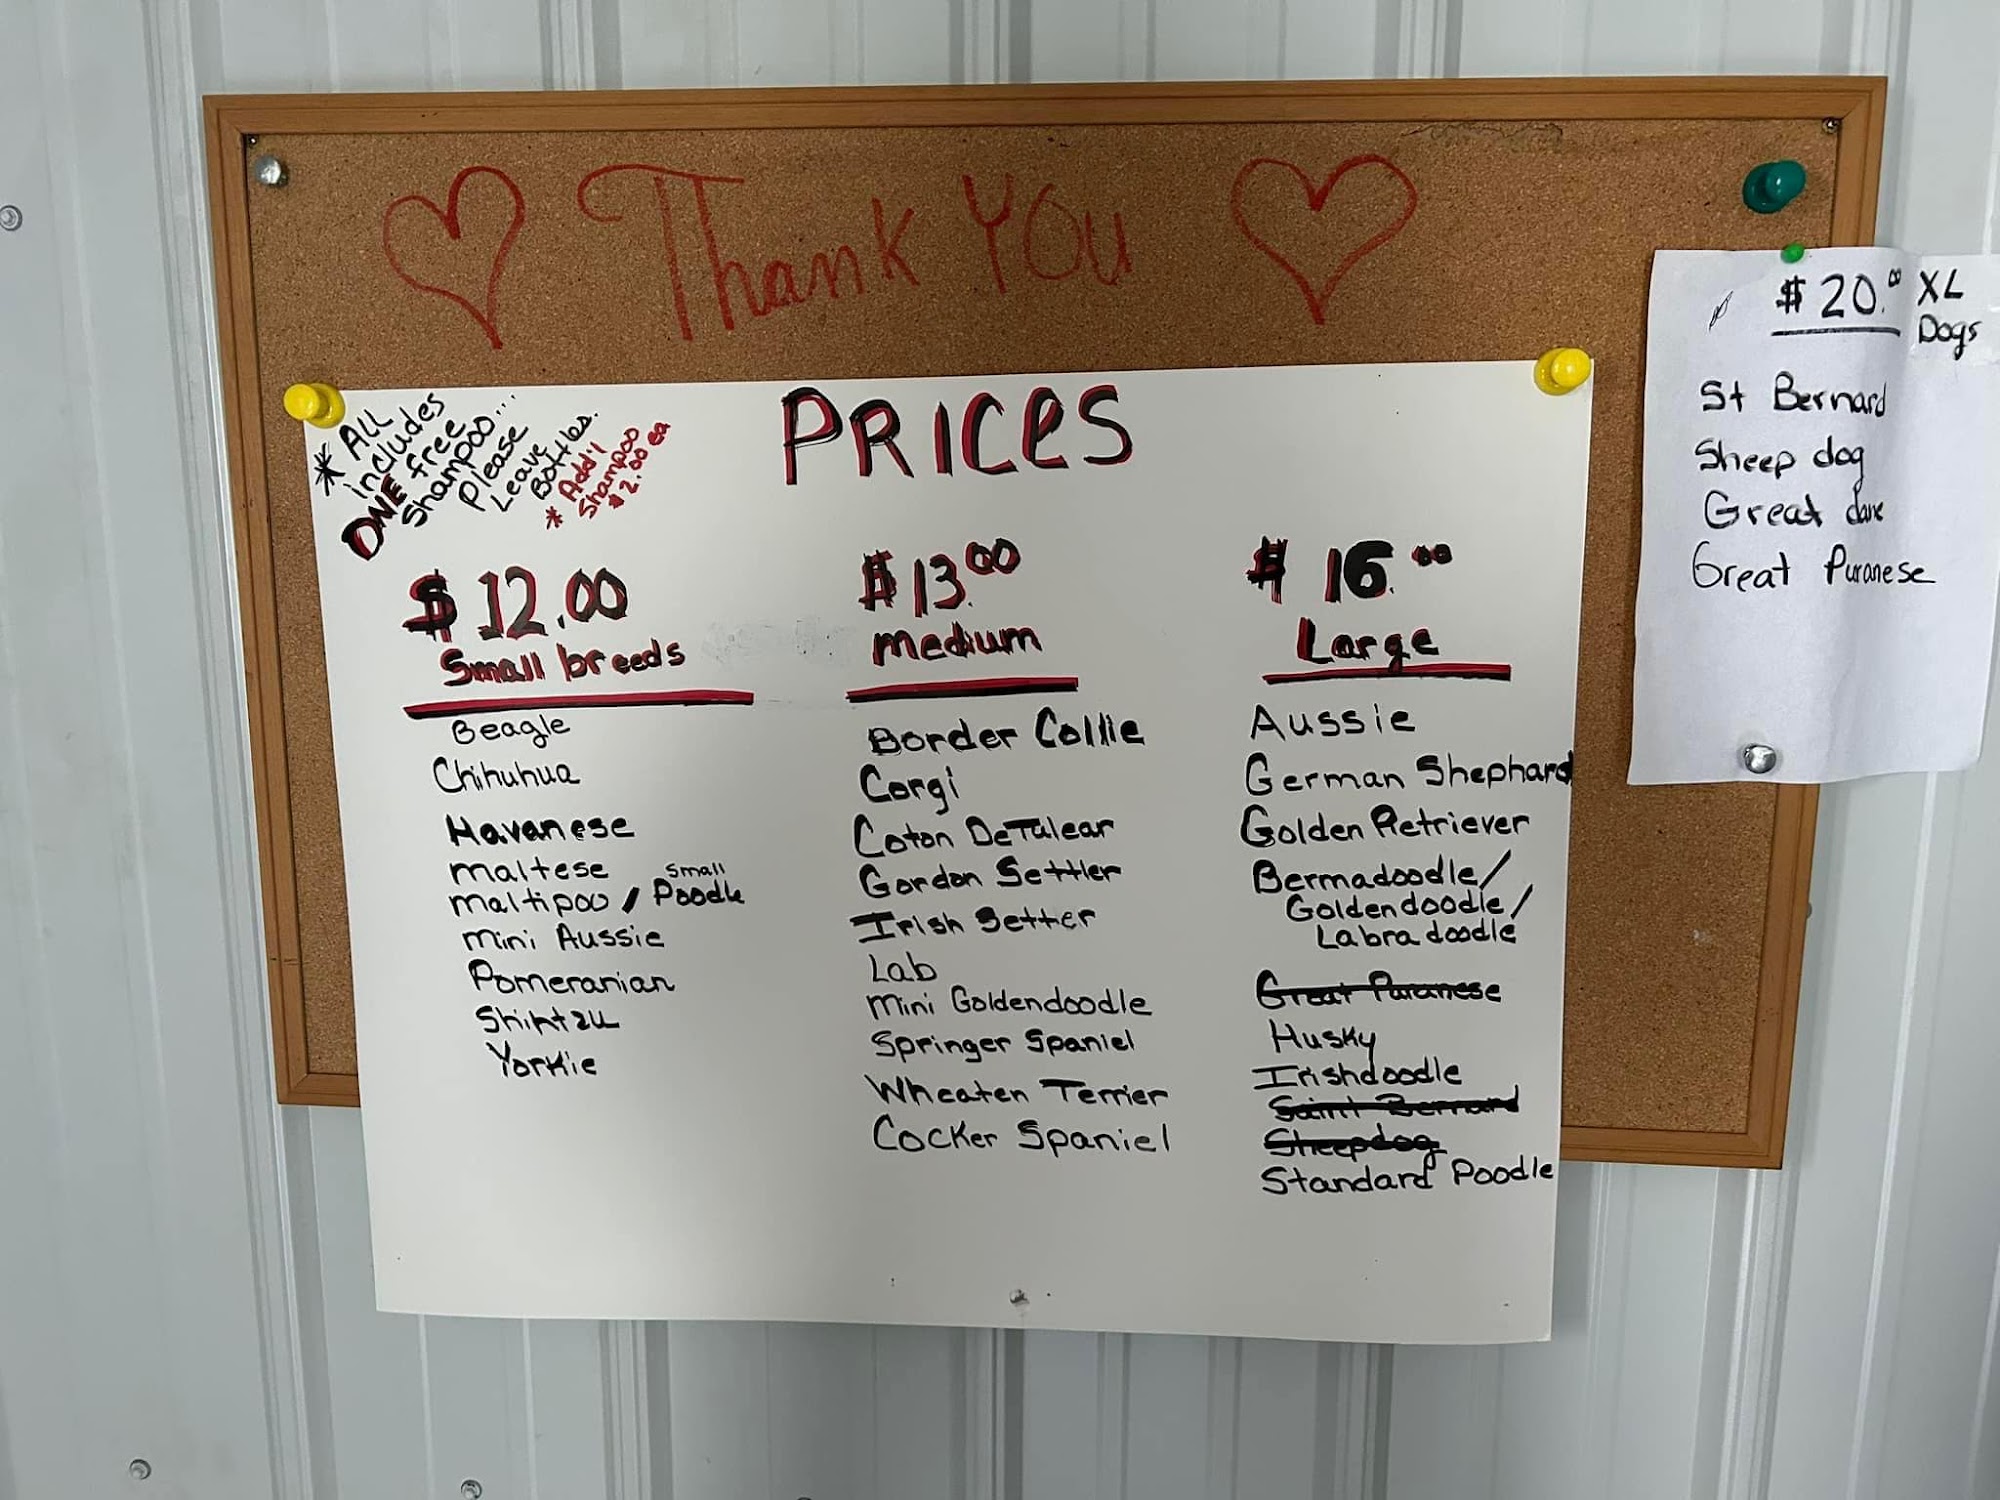 Thank YOU
* ALL
includes
ONE free
Shampoo...
Please
Leave
Bottles.
* Add'l
Shampoo
$2.00 ea
PRICES
$12.00
Small breeds
Beagle
Chihuhua
Havanese
Maltese
Maltipoo / Small Poodle
Mini Aussie
Pomeranian
Shihtzu
Yorkie
$13.00
Medium
Border Collie
Corgi
Coton DeTulear
Gordon Settler
Irish Setter
Lab
Mini Goldendoodle
Springer Spaniel
Wheaten Terrier
Cocker Spaniel
$16.00
Large
Aussie
German Shephard
Golden Retriever
Bermadoodle/
Goldendoodle/
Labradoodle
Great Puranese
Husky
Irishdoodle
Saint Bernard
Sheepdog
Standard Poodle
$20.00 XL
Dogs
St Bernard
Sheep dog
Great dane
Great Puranese